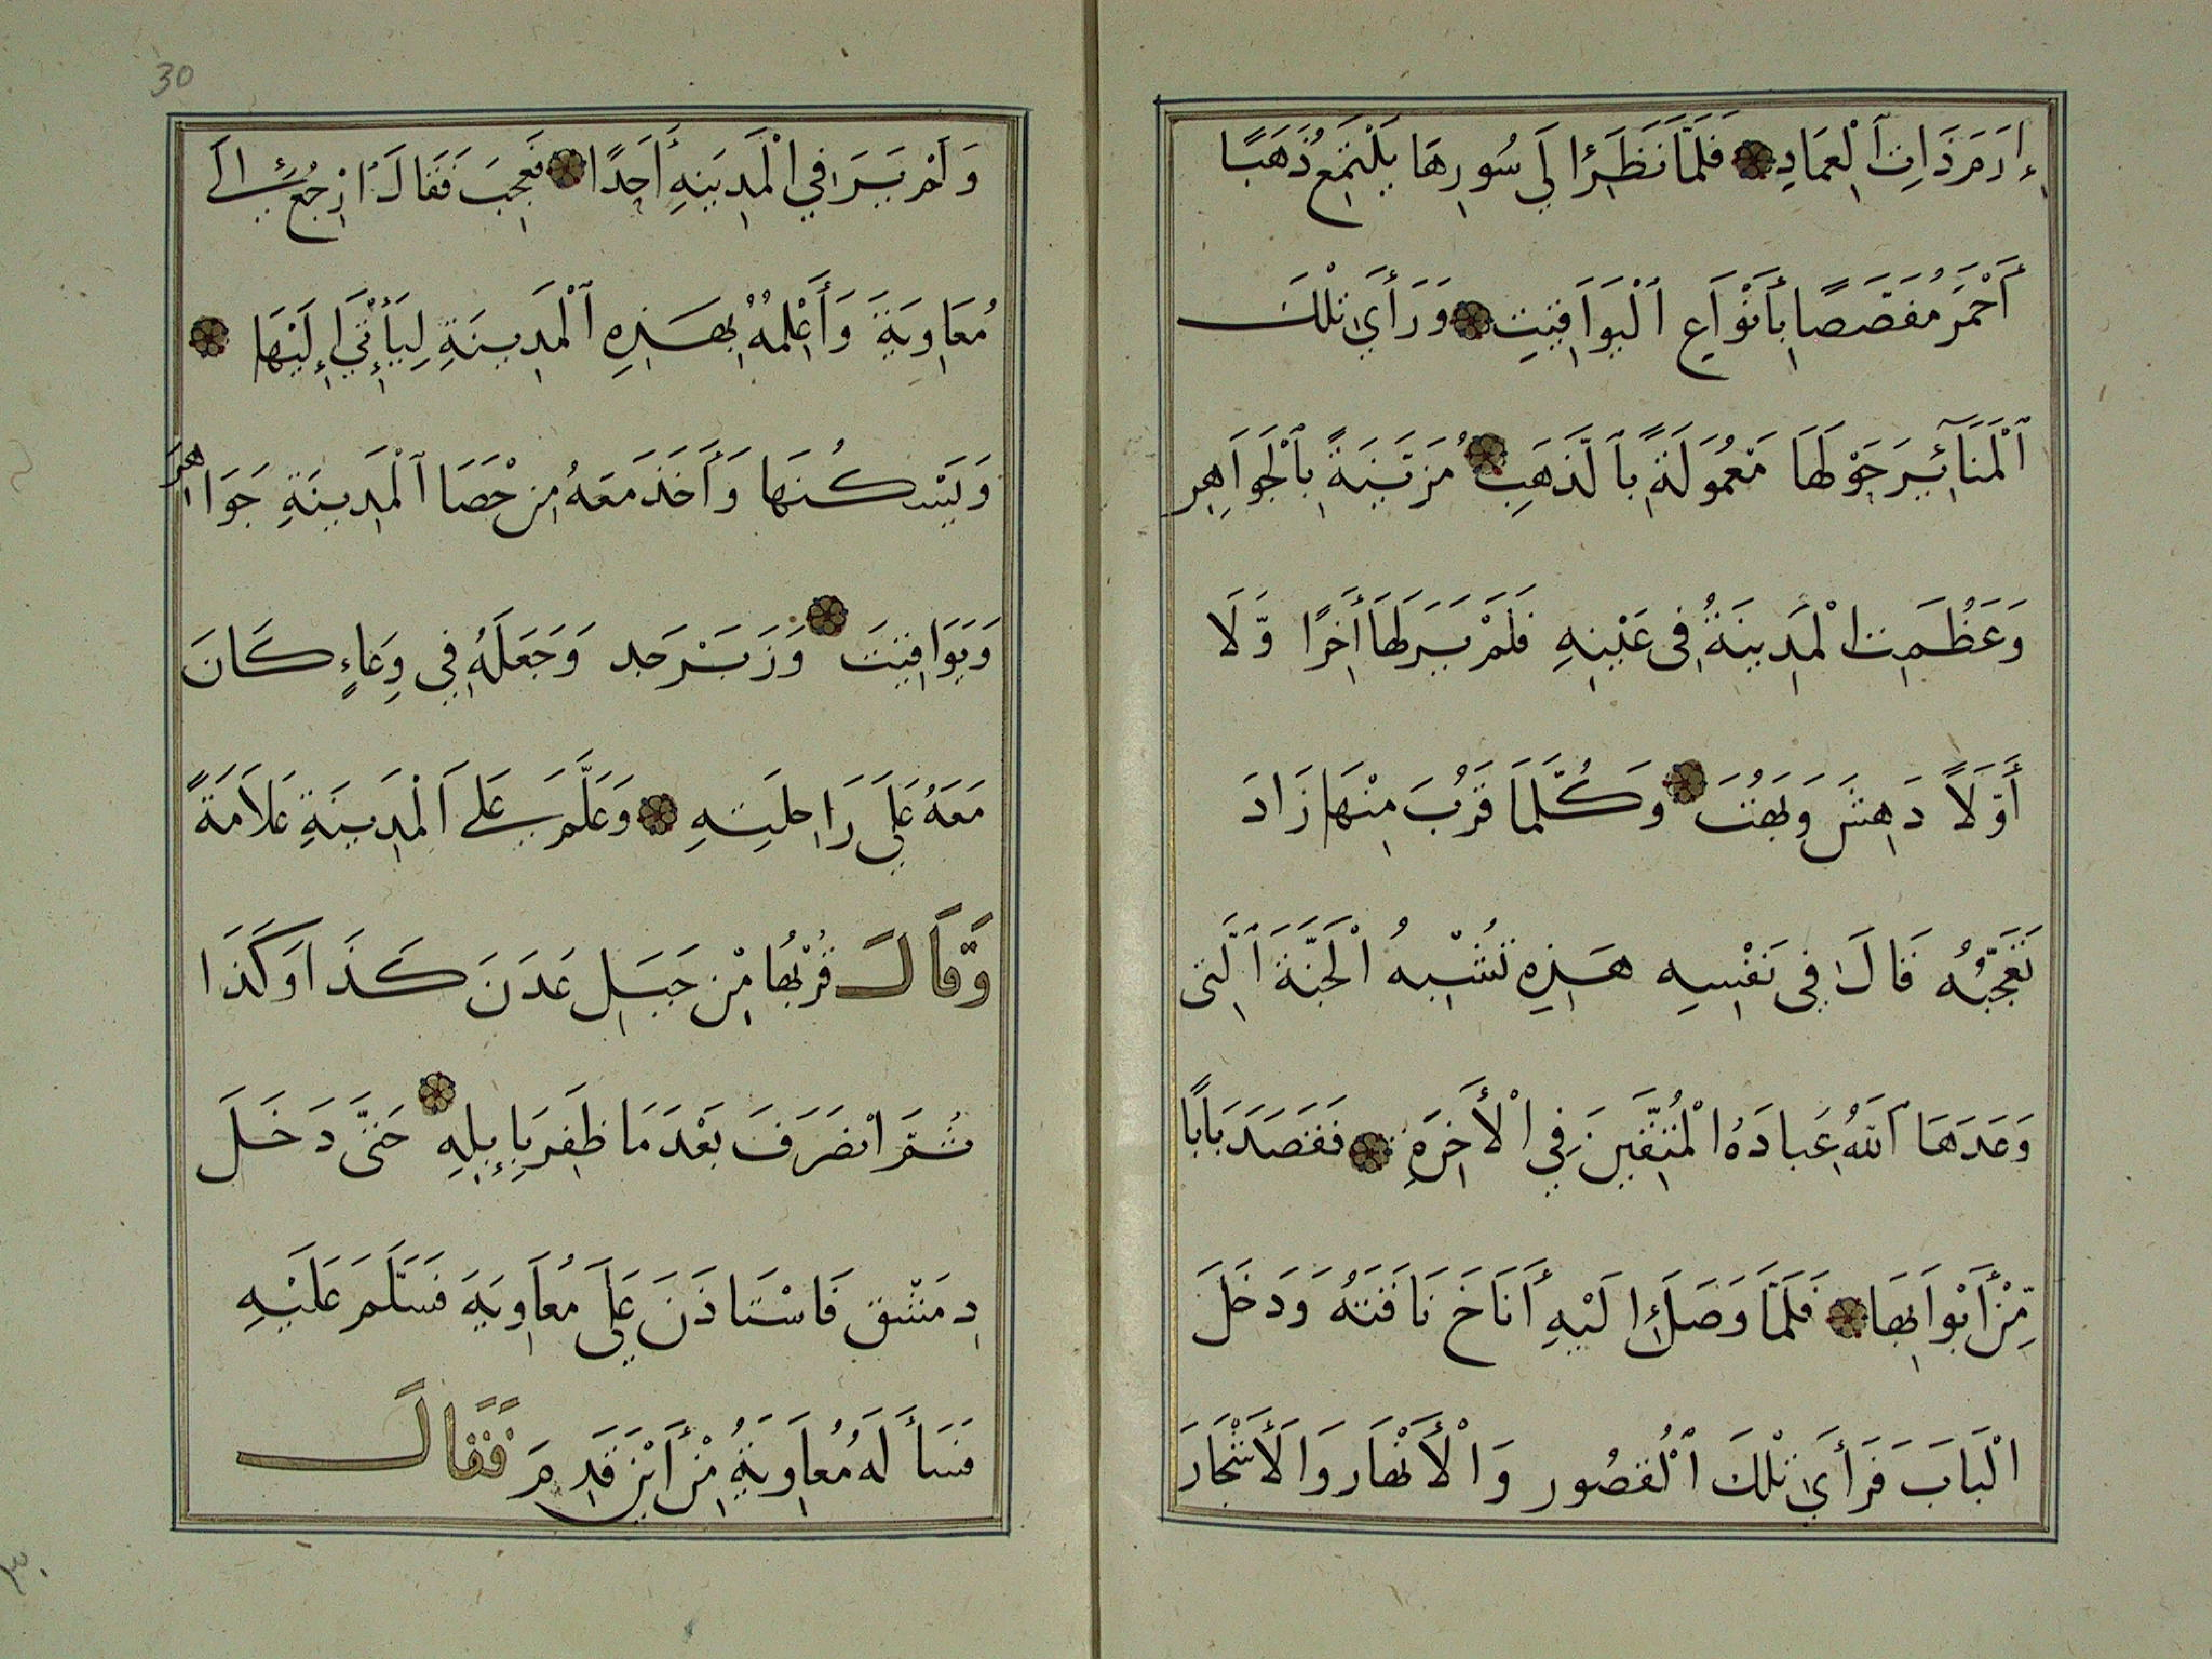 إِرَمَ ذَاتِ الْعِمَادِ فَلَمَّا نَظَرَ إِلَي سُورِهَا يَلْتَمِعُ ذَهَبًا
أَحْمَرَ مُفَصَّصًا بِأَنْوَاعِ الْيَوَاقِيتِ وَرَأَي تِلْكَ
الْمَنَائِيرَ حَوْلَهَا مَعْمُولَةً بِالذَّهَبِ مُزَيَّنَةً بِالْجَوَاهِرِ
وَعَظُمَتِ الْمَدِينَةُ فِي عَيْنِهِ فَلَمْ يَرَ لَهَا أَخِرًا وَّلَا
أَوَّلًا دَهِشَ وَبَهُتَ وَكُلَّمَا قَرُبَ مِنْهَا زَادَ
تَعَجُّبُهُ قَالَ فِي نَفْسِهِ هَذِهِ تُشْبِهُ الْجَنَّةَ الَّتِي
وَعَدَهَا اللَّهُ عِبَادَهُ الْمُتَّقِينَ فِي الْأَخِرَةِ فَقَصَدَ بَابًا
مِّنْ أَبْوَابِهَا فَلَمَّا وَصَلَ إِلَيْهِ أَنَاخَ نَاقَتَهُ وَدَخَلَ
الْبَابَ فَرَأَي تِلْكَ الْقُصُور وَالْأَنْهَار وَالْأَشْجَارَ
30
وَلَمْ يَرَ فِي الْمَدِينَةِ أَحَدًا فَعَجِبَ فَقَالَ ارْجُعُ إِلَي
مُعَاوِيَةَ وَأُعْلِمُهُ بِهَذِهِ الْمَدِينَةِ لِيَأْتِيَ إِلَيْهَا
وَيَسْكُنَهَا وَأَخَذَ مَعَهُ مِنْ حَصَا الْمَدِينَةِ جَوَاهِرَ
وَيَوَاقِيتَ وَزَبَرْجَد وَجَعَلَهُ فِي وِعَاءٍ كَانَ
مَعَهُ عَلَي رَاحِلَتِهِ وَعَلَّمَ عَلَي الْمَدِينَةِ عَلَامَةً
وَقَالَ قُرْبُهَا مِنْ جَبَلِ عَدَنَ كَذَا وَكَذَا
ثُمَّ انْصَرَفَ بَعْدَ مَا ظَفِرَ بِإِبِلِهِ حَتَّى دَخَلَ
دِمَشْق فَاسْتَاذَنَ عَلَي مُعَاوِيَةَ فَسَلَّمَ عَلَيْهِ
فَسَأَلَهُ مُعَاوِيَةُ مِنْ أَيْنَ قَدِمَ فَقَالَ
٣٠